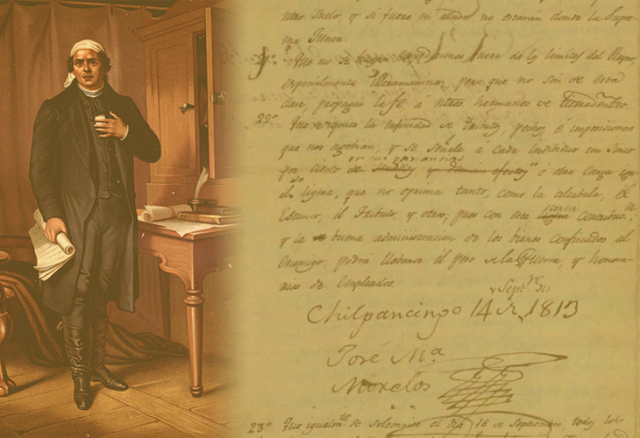 otro suelo, y si fuere en el mar no estarán donde la Supre-
ma Junta.
Que no se hagan expediciones fuera de los limites del Reyno,
especialmente Ultramarinas, pero que no son de esta
clase, propagar la fé a ntros hermanos de tierradentro.
22º Que se quite la infinidad de tributos, pechos é imposiciones
que nos agobian, y se señale á cada individuo un cinco
por ciento en sus ganancias ú otra carga igual
ligera, que no oprima tanto, como la alcabala, el
Estanco, el Tributo, y otros, pues con esta corta contribucion,
y la buena administracion de los bienes confiscados al
Enemigo, podrá llevarse el peso de la Guerra, y honora-
rios de Empleados.
Chilpancingo 14 de Septre de 1813
José Ma
Morelos
23º Que igualmte se solemnice el dia 16 de Septiembre, todos los